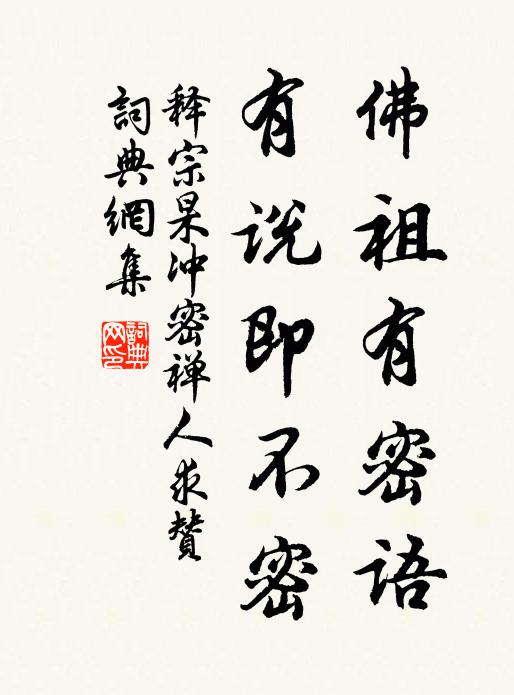 佛祖有密语
有说即不密
释宗杲冲密禅人求赞
词典網集
詞典网印